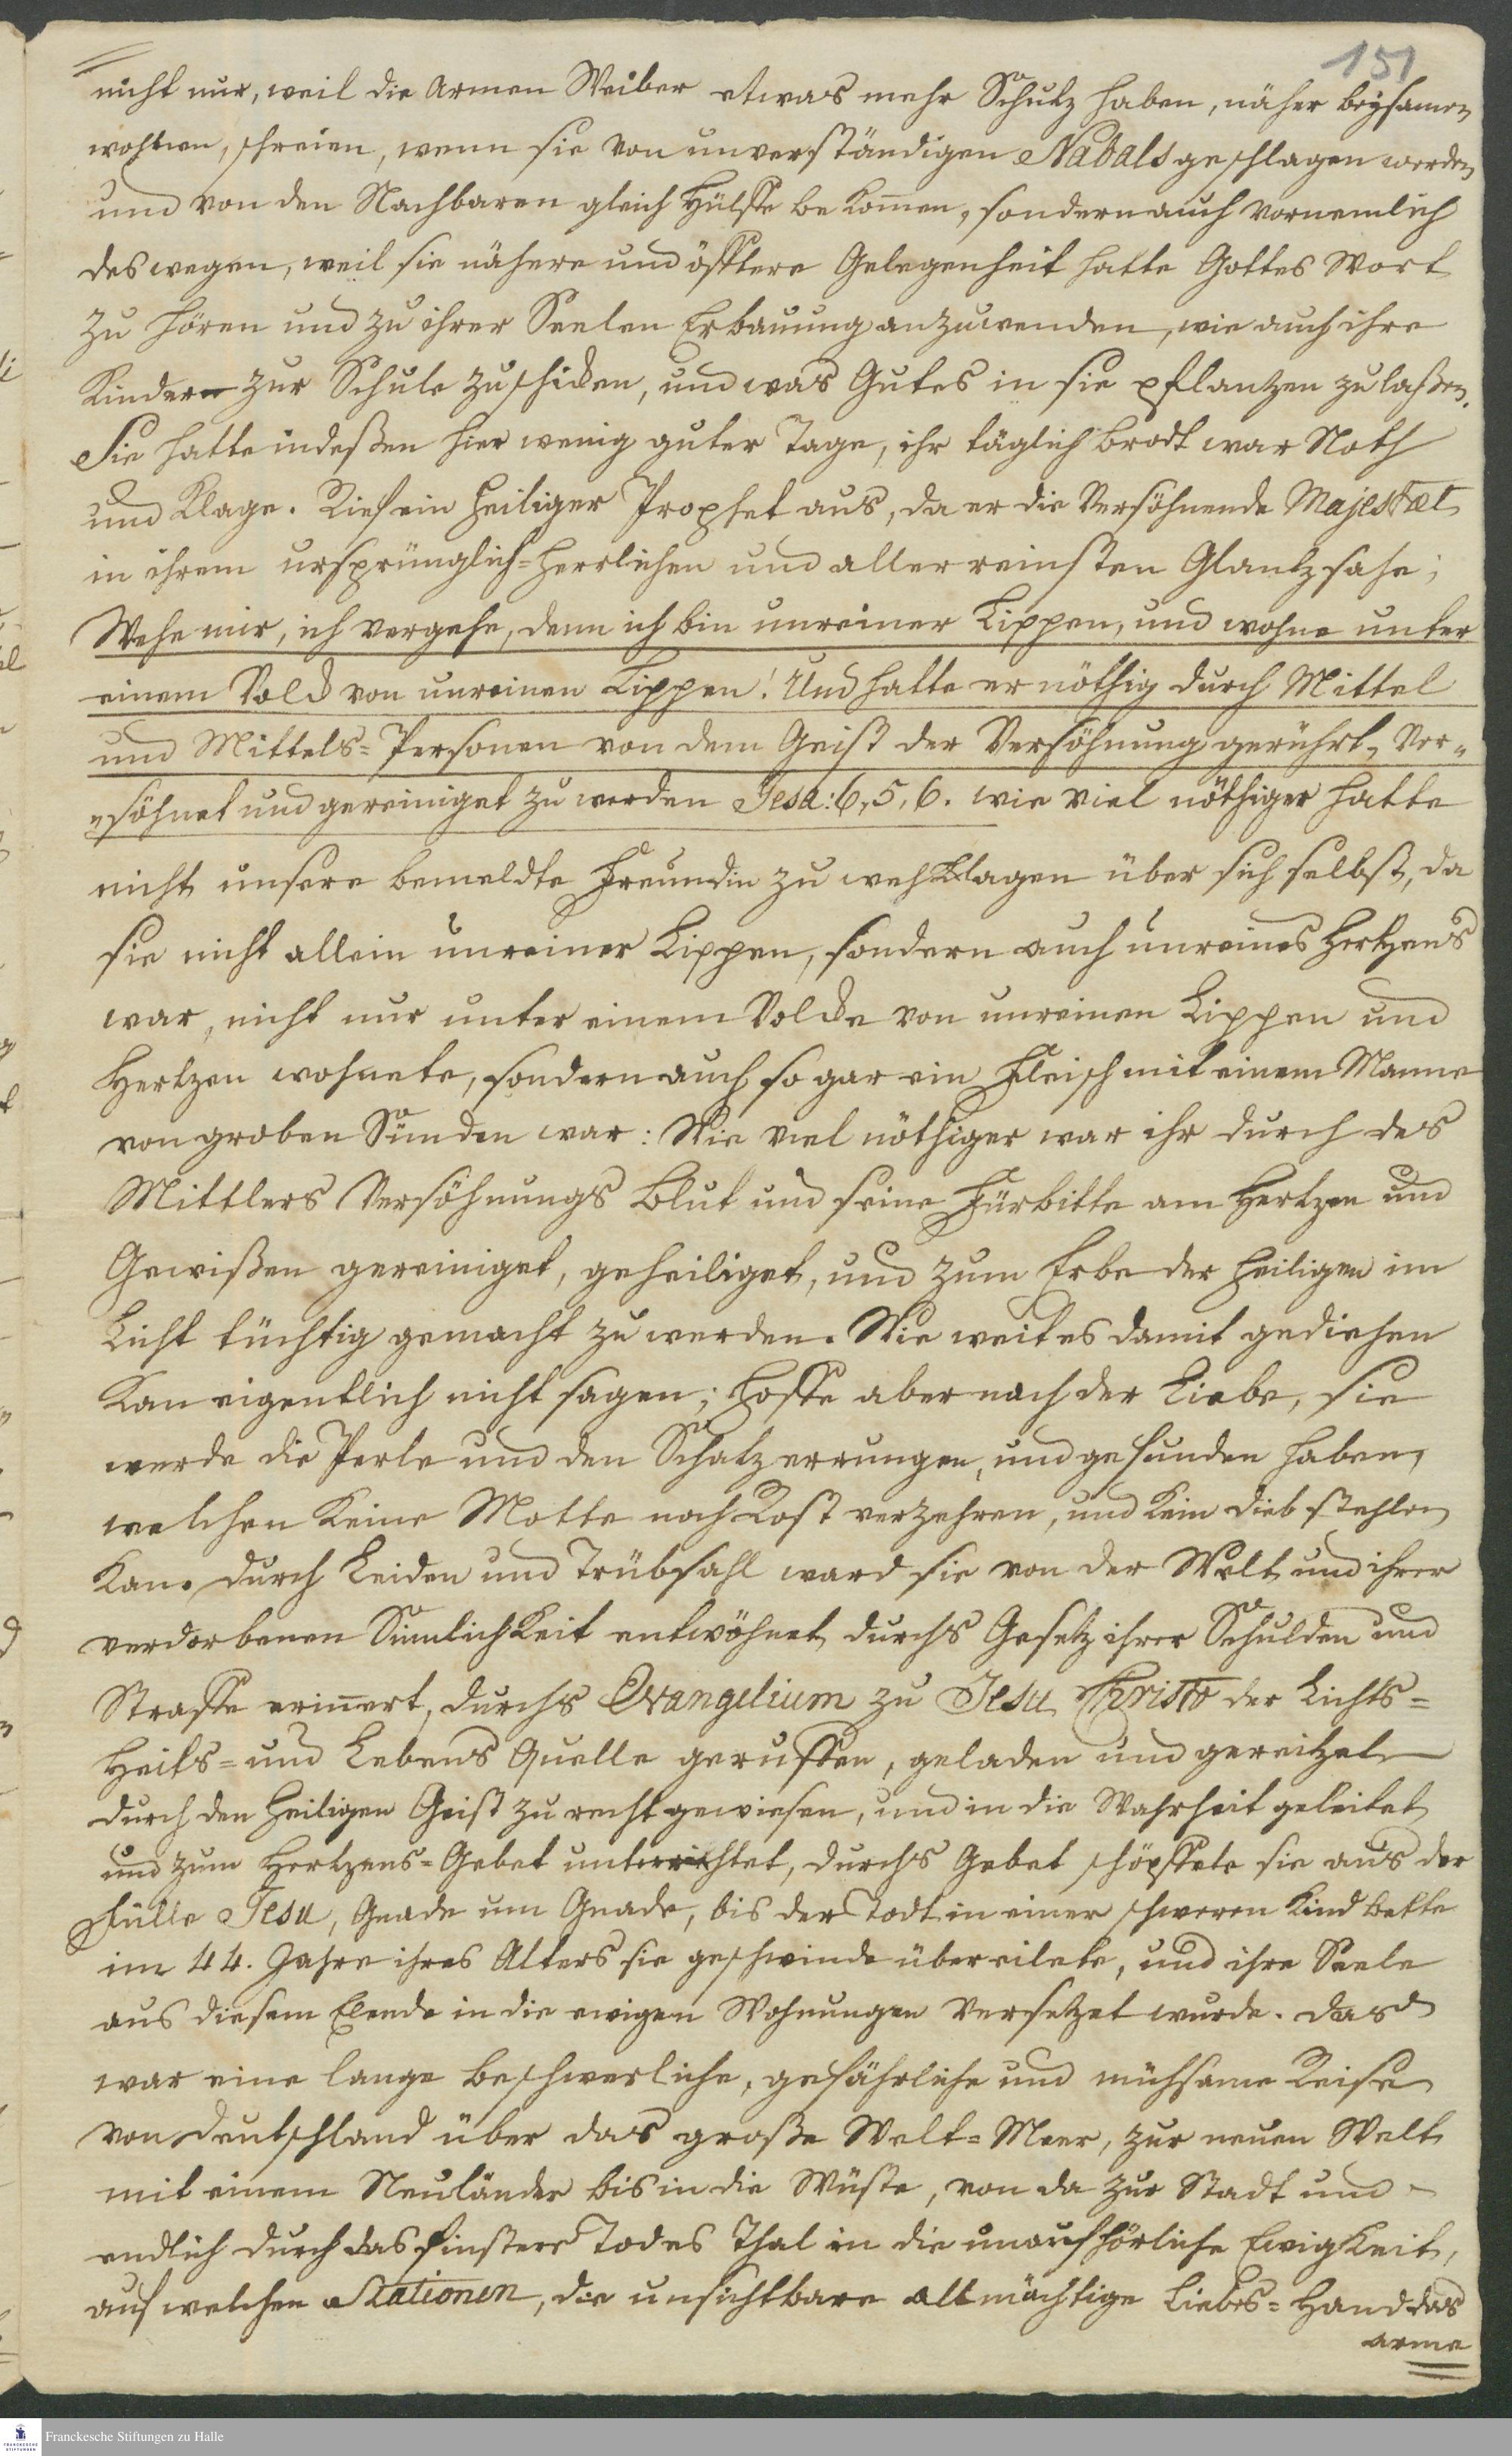 151
nicht nur, weil die armen Weiber etwas mehr Schutz haben, näher beysamen
wohnen, schreien, wenn sie von unverständigen Nabals geschlagen werden
und von den Nachbaren gleich Hülffe bekom̅en, sondern auch vornemlich
deswegen, weil sie nähere und öfftere Gelegenheit hatte Gottes Wort
zu hören und zu ihrer Seelen Erbauung anzuwenden, wie auch ihre
Kinder zur Schule zu schicken, und was Gutes in sie pflantzen zu laßen.
Sie hatte indeßen hier wenig guter Tage, ihr täglich Brodt war Noth
und Klage. Rief ein heiliger Prophet aus, da er die Versöhnende Majestæt
in ihrem ursprünglich=herrlichen und allerreinsten Glantz sahe;
Wehe mir, ich vergehe, denn ich bin unreiner Lippen, und wohne unter
einem Volck von unreinen Lippen! Und hatte er nöthig durch Mittel
und Mittels=Personen von dem Geist der Versöhnung gerührt, Ver=
=söhnet und gereiniget zu werden Jesa: 6, 5, 6. wie viel nöthiger hatte
nicht unsere bemeldte Freundin zu wehklagen über sich selbst, da
sie nicht allein unreiner Lippen, sondern auch unreines Hertzens
war, nicht nur unter einem Volcke von unreinen Lippen und
Hertzen wohnete, sondern auch so gar ein Fleisch mit einem Manne
von groben Sünden war: Wie viel nöthiger war ihr durch des
Mittlers Versöhnungs Blut und seine Fürbitte am Hertzen und
Gewißen gereiniget, geheiliget, und zum Erbe der Heiligen im
Licht tüchtig gemacht zu werden. Wie weit es damit gediehen
kan eigentlich nicht sagen; hoffe aber nach der Liebe, sie
werde die Perle und den Schatz errungen, und gefunden haben,
welchen keine Motte noch Rost verzehren, und kein Dieb stehlen
kan. Durch Leiden und Trübsahl ward sie von der Welt und ihrer
verdorbenen Sinnlichkeit entwöhnet, durchs Gesetz ihrer Schulden und
Straffe erin̅ert, durchs Evangelium zu Jesu Christo der Lichts=
Heils= und Lebens Quelle geruffen, geladen und gereitzet
durch den heiligen Geist zu recht gewiesen, und in die Wahrheit geleitet
und zum Hertzens=Gebet unterrichtet, durchs Gebet schöpffete sie aus der
Fülle Jesu, Gnade um Gnade, bis der Todt in einer schweren Kind bette
im 44. Jahre ihres Alters sie geschwinde übereilete, und ihre Seele
aus diesem Elende in die ewigen Wohnungen versetzet wurde. Das
war eine lange beschwerliche, gefährliche und mühsame Reise
von Deutschland über das große Welt=Meer, zur neuen Welt
mit einem Neuländer bis in die Wüste, von da zur Stadt und
endlich durch das finstere Todes Thal in die unaufhörliche Ewigkeit,
auf welchen Stationen, die unsichtbare allmächtige Liebes=Hand das
arme
Franckesche Stiftungen zu Halle